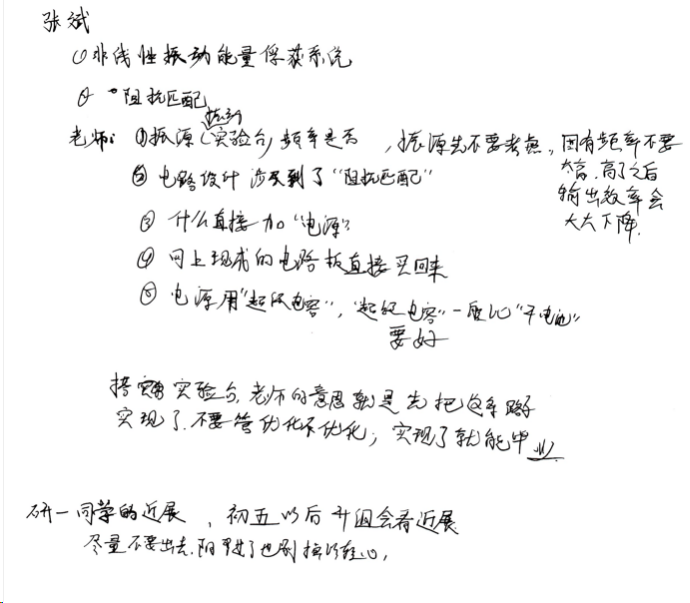 张斌
① 非线性振动能量俘获系统
② "阻抗匹配
老师: ① 振源(实验台)频率是否 ,振源先不要考虑,固有频率不要
振动
太高,高了之后
输出效率会
大大下降.
② 电路设计 涉及到了"阻抗匹配"
③ 什么直接加"电源"?
④ 网上现成的电路板直接买回来
⑤ 电源用"超级电容","超级电容"一定比"干电池"
要好
搭 实验台,老师的意思就是先把这条路子
实现了.不要管优化不优化,实现了就能毕业.
研一同学的近展 ,初五以后开组会看近展
尽量不要出去.阳 了也别掉以轻心,